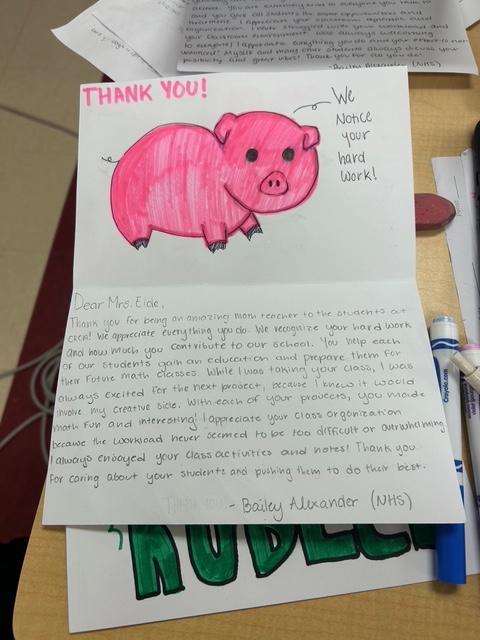 and you give all students the same opportunities and
organization. I have struggled with
your classroom environment.
to everyone! I appreciate everything you do and your effort is not
unnoticed! Myself and many other students always discuss your
positivity and great vibes! Thank you for all you do!
- Bailey Alexander (NHS)
THANK YOU!
We
Notice
your
hard
WORK!
Dear Mrs. Eide,
Thank you for being an amazing math teacher to the students at
CRCA! We appreciate everything you do. We recognize your hard work
and how much you contribute to our school. You help each
of our students gain an education and prepare them for
their future math classes. While I was taking your class, I was
always excited for the next project, because I knew it would
involve my creative side. With each of your projects, you made
math fun and interesting! I appreciate your class organization
because the workload never seemed to be too difficult or overwhelming.
I always enjoyed your class activities and notes! Thank you
for caring about your students and pushing them to do their best.
- Bailey Alexander (NHS)
Crayola